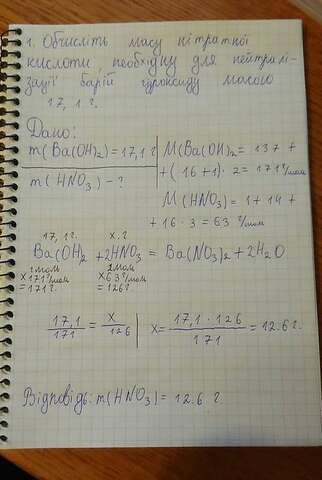 1. Обчисліть масу нітратної
кислоти, необхідну для нейтралі-
зації барій гідроксиду масою
17,1 г.
Дано:
m(Ba(OH)₂)=17,1 г
m(HNO₃) - ?
M(Ba(OH)₂= 137 +
+(16+1)·2=171г/моль
M(HNO₃)=1+14+
+16·3=63 г/моль
17,1г. x.?
Ba(OH)₂ + 2HNO₃ = Ba(NO₃)₂ + 2H₂O
1моль 2моль
x171г/моль x63г/моль
=171г. =126г
17,1/171 = x/126 | x= 17,1·126/171 = 12.6 г.
Відповідь: m(HNO₃)=12.6 г.